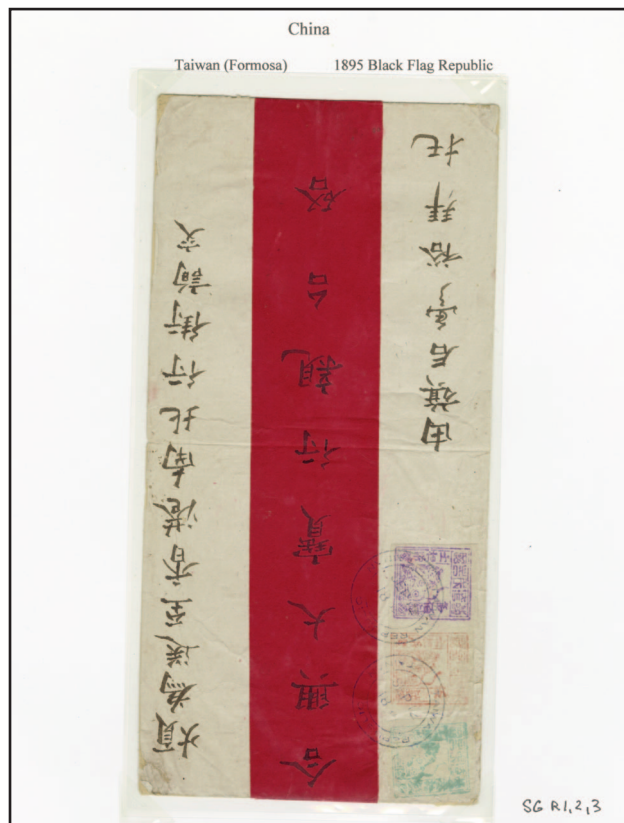 China
Taiwan (Formosa) 1895 Black Flag Republic
煩為送至香港南北行街詢交
合興大寶行親台啓
由旗后裕拜托
SG R1,2,3